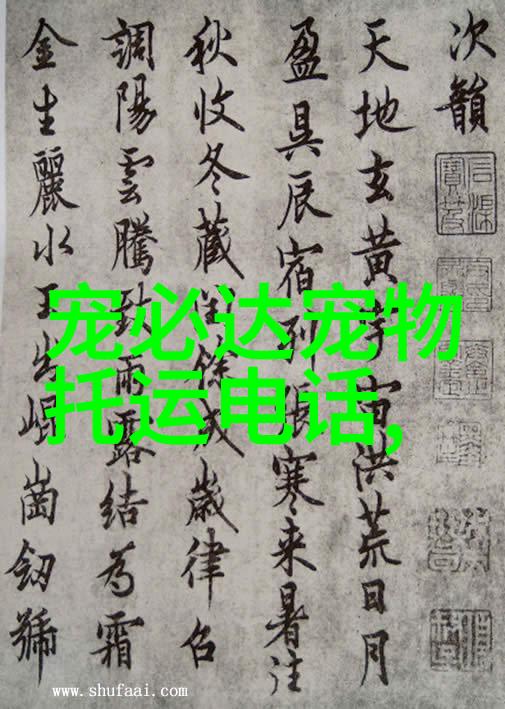 次韻
天地玄黄宇宙洪荒日月
盈昃辰宿列張寒来暑往
秋收冬藏閏餘成歲律召
調陽雲騰致雨露結為霜
金生麗水玉出崐崗劒號
宠必达宠物
托运电话,
www.shufaai.com